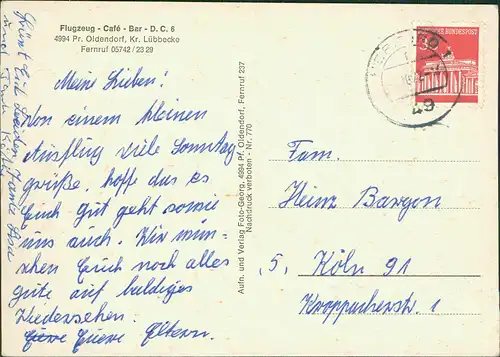 Flugzeug - Café - Bar - D. C. 6
4994 Pr. Oldendorf, Kr. Lübbecke
Fernruf 05742 / 23 29
Meine Lieben!
Von einem kleinen
Ausflug viele Sonntag
grüße, hoffe das es
Euch gut geht sowie
uns auch. Wir wün-
schen Euch noch alles
gute auf baldiges
Wiedersehen.
Euere Eltern.
Grüßt Euch beiden Tante Lisa
und Tante
Aufn. und Verlag Foto-Georg, 4994 Pr. Oldendorf, Fernruf 237
Nachdruck verboten - Nr. 770
DEUTSCHE BUNDESPOST
49
Fam.
Heinz Bargon
5. Köln 91
Kroppacherstr. 1